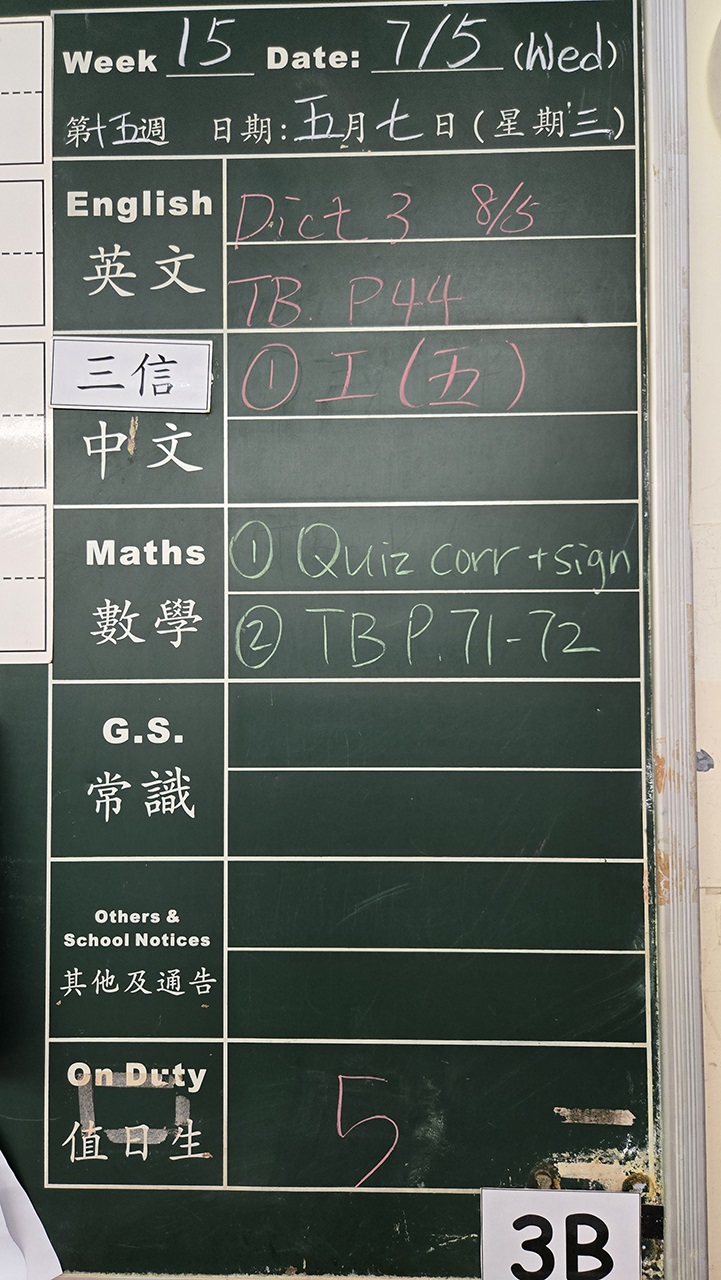 Week 15 Date: 7/5 (Wed)
第十五週 日期: 五月七日 (星期三)
English
英文
Dict 3 8/5
TB P44
三信
中文
① 工 (五)
Maths
數學
① Quiz corr + sign
② TB P.71-72
G.S.
常識
Others &
School Notices
其他及通告
On Duty
值日生
5
3B